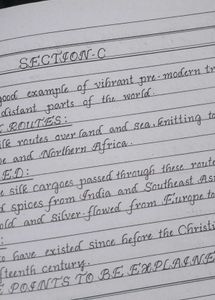 SECTION-C
good example of vibrant pre-modern tr
distant parts of the world.
ROUTES:
silk routes over land and sea, knitting to
and Northern Africa.
ED:
silk cargoes passed through these route
spices from India and Southeast As
gold and silver flowed from Europe to
have existed since before the Christi
fteenth century.
POINTS TO BE EXPLAINE